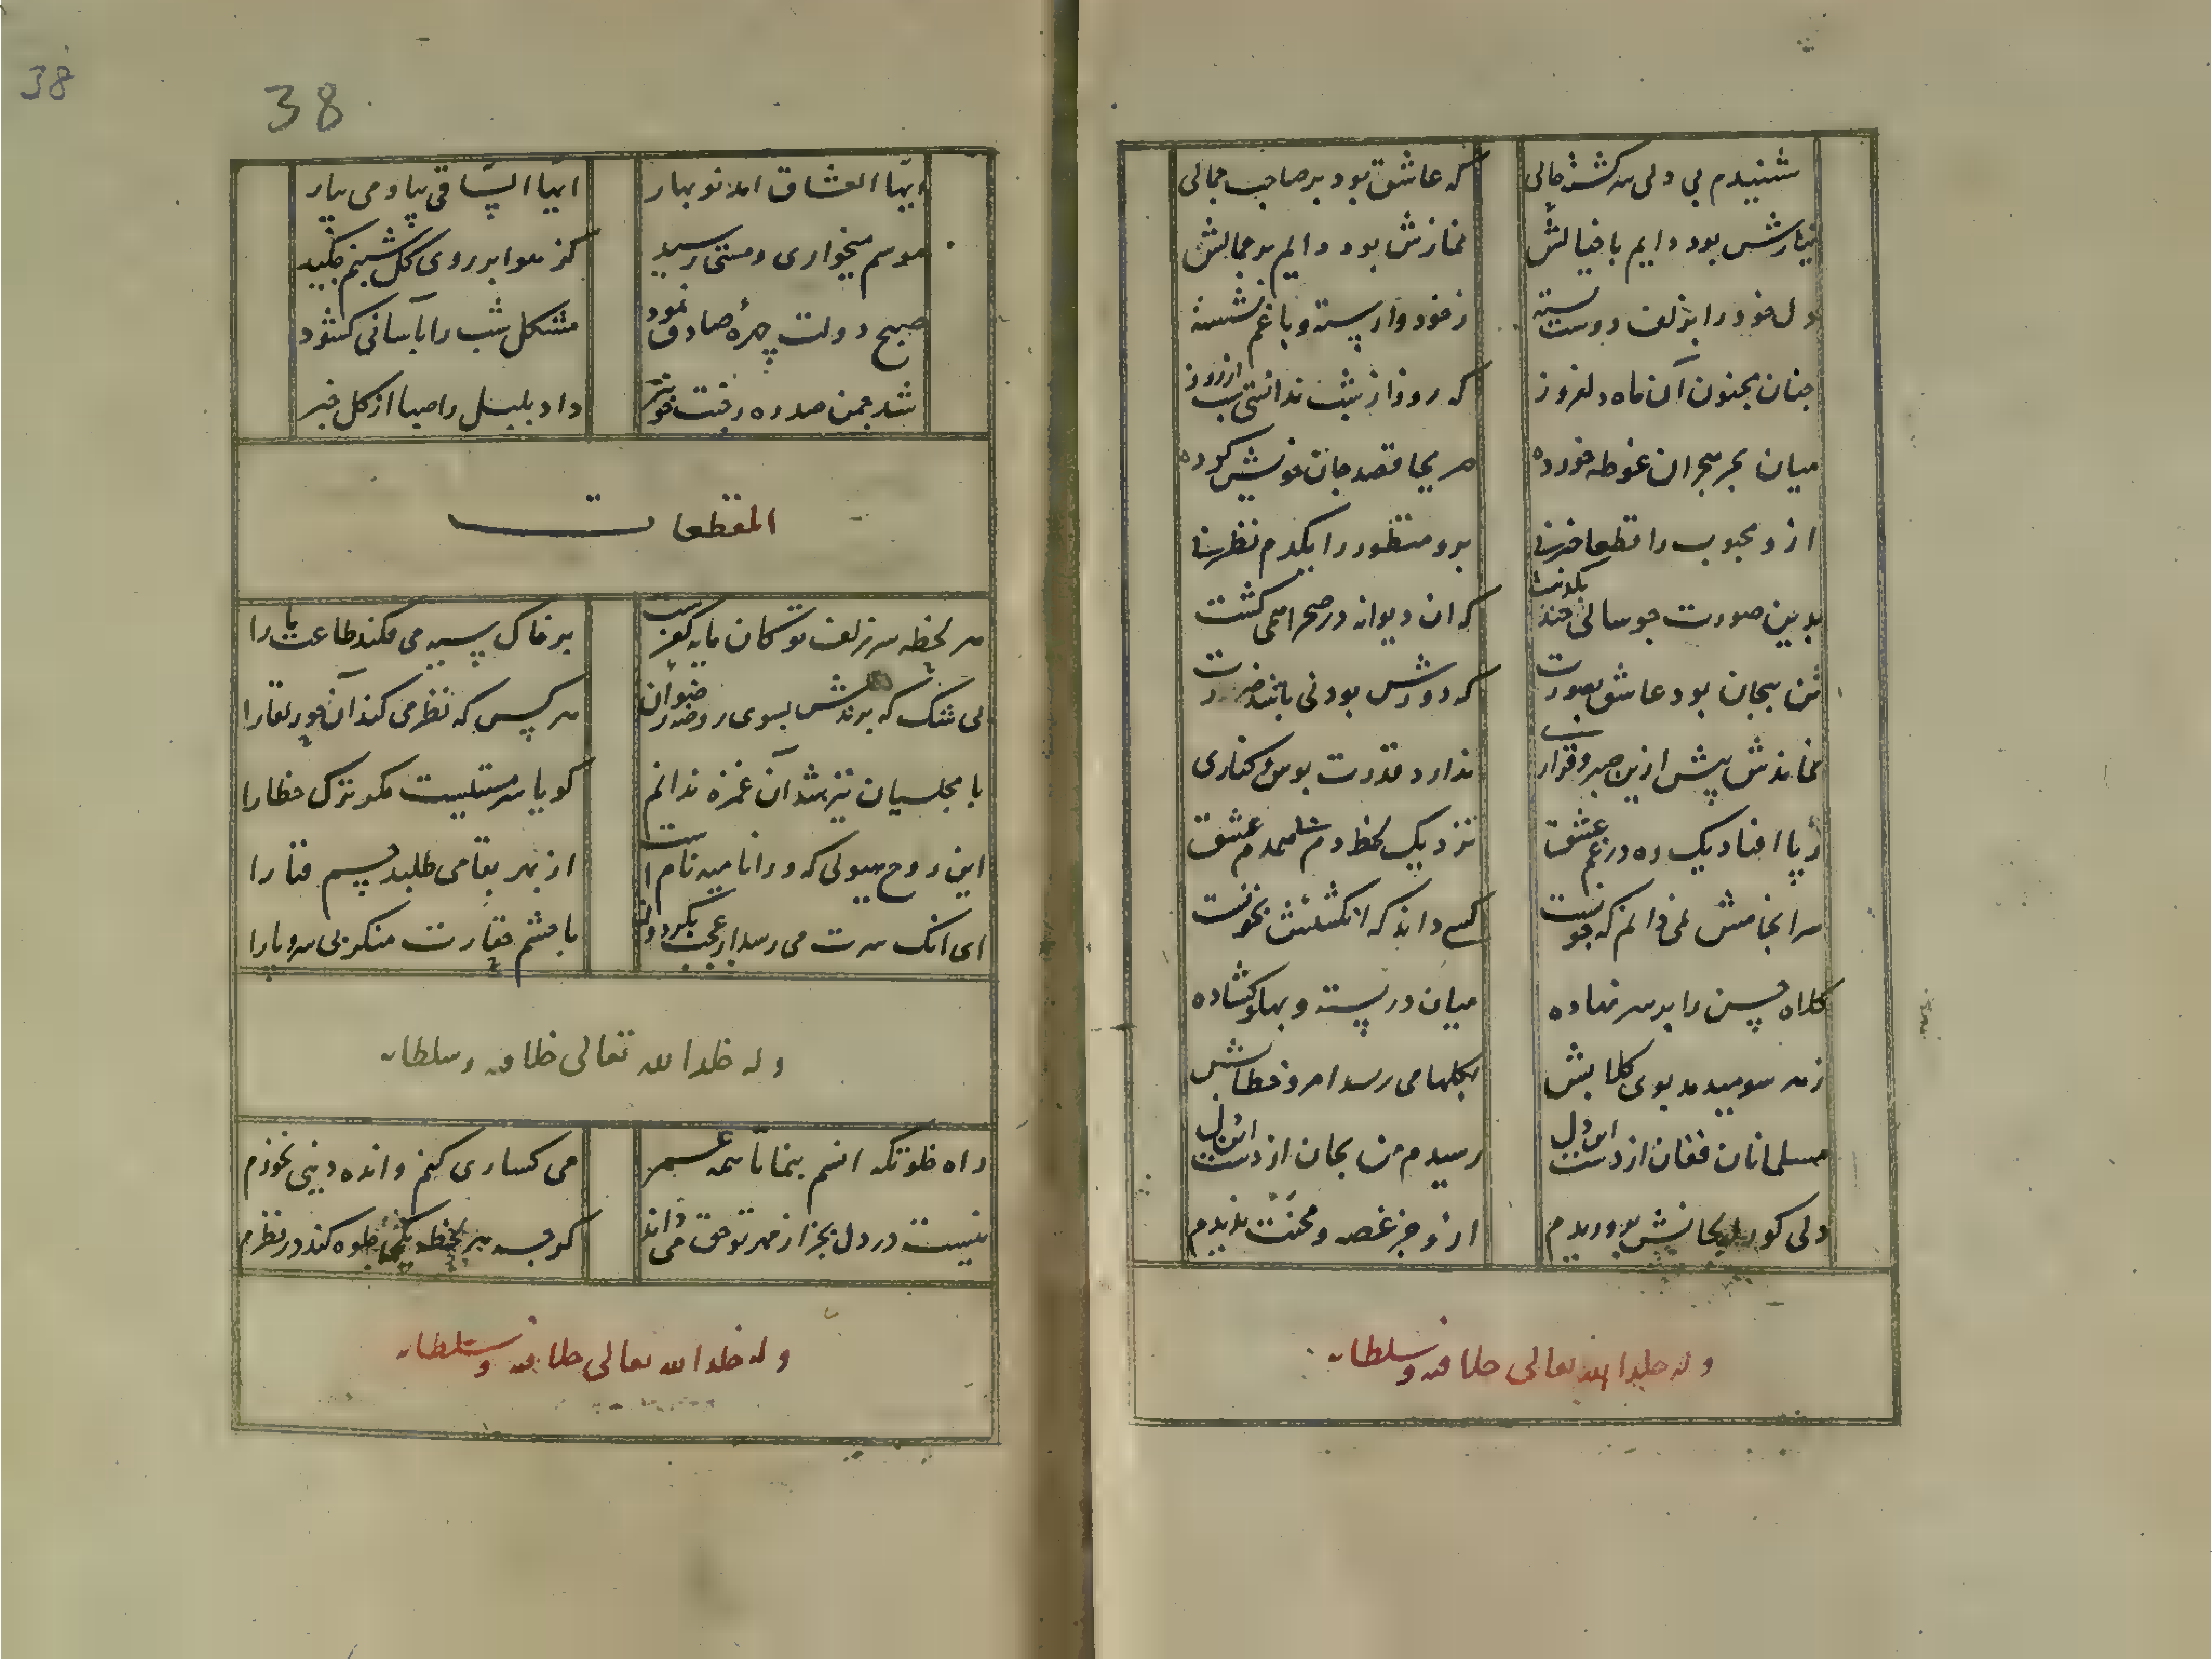 شنیدم بی دلی سرگشته حالی
که عاشق بود بر صاحب جمالی
نیازش بود دایم با خیالش
نمازش بود دایم بر جمالش
دل خود را بزلف دوست بسته
ز خود وارسته و با غم نشسته
چنان مجنون آن ماه دلفروز
که روز از شب ندانستی شب از روز
میان بحر هجران غوطه خورده
قصد جان خویش کرده
ازو محبوب را قطعا خبر نی
برو منظور را یکدم نظر نی
بدین صورت چو سالی چند بگذشت
که آن دیوانه در صحرا همی گشت
بجان بود عاشق بصورت
که دورش بودنی باشد ضرورت
نماندش بیش ازین صبر و قراری
ندارد قدرت بوس و کناری
ز پا افتاد یک ره در غم عشق
نزد یک لحظه دم عشق
سرانجامش نمی دانم که چونست
کسی داند که انگشتش بخونست
کلاه حسن را بر سر نهاده
میان در بسته و پهلو گشاده
ز هر سو میدمد بوی کلابش
بکلها می رسد امروز خطابش
مسلمانان فغان از دست این دل
رسیدم من بجان از دست این دل
دلی کو را بجانش پروریدم
ازو جز غصه و محنت ندیدم
وله خلد الله تعالی خلافته وسلطانه
38
38
ایها العشاق آمد نوبهار
ایها الساقی بیا و می بیار
موسم میخواری و مستی رسید
کز هوا بر روی گل شبنم چکید
صبح دولت چهره صادق نمود
مشکل شب را بآسانی کشود
شد چمن صد ره ز جنت خوبتر
داد بلبل را صبا از گل خبر
المقطعات
هر لحظه سر زلف تو کان مایه کفرست
بر خاک سیه می فکند طاعت ما را
بی شک که برندش بسوی روضه رضوان
هر کس که نظر می کند آن حور لقا را
با مجلسیان تیز شد آن غمزه ندانم
کویا سر مستیست مکو ترک خطا را
این روح هیولی که ورا نامیه نام است
از بهر بقا می طلبد جسم فنا را
ای آنک سرت می رسد از عجب بکردون
با چشم حقارت منکر بی سر و پا را
وله خلد الله تعالی خلافته وسلطانه
راه خلوتگه انسم بنما تا همه عمر
می کساری کنم و انده دنیی نخورم
نیست در دل بجز از مهر تو حق می داند
کرچه هر لحظه جلوه کند در نظرم
وله خلد الله تعالی خلافته وسلطانه